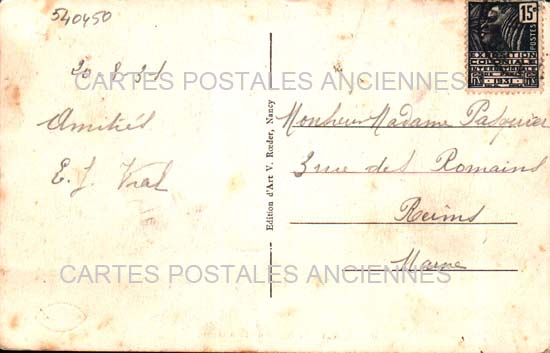 540450
20-8-31
Amitiés
E. J. Vial
Edition d'Art V. Rœder, Nancy
15c
POSTES
EXPOSITION
COLONIALE
INTERNATIONALE
1931
Monsieur Madame Pasquier
3 rue des Romains
Reims
Marne
CARTES POSTALES ANCIENNES
CARTES POSTALES ANCIENNES